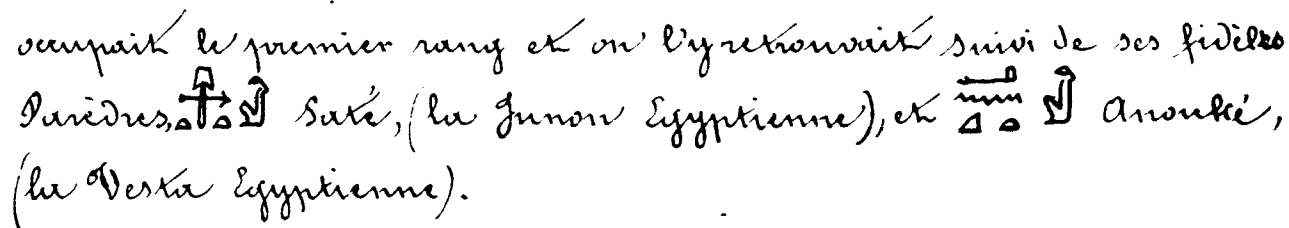 occupait le premier rang et on l'y retrouvait suivi de ses fidèles
Parèdres, Saté, (la Junon Egyptienne), et Anouké,
(la Vesta Egyptienne).